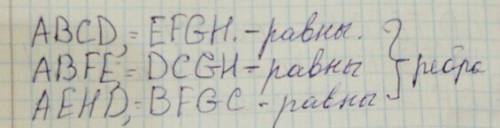 ABCD,= EFGH. - равны.
ABFE = DCGH - равны
AEHD,= BFGC - равны
ребра